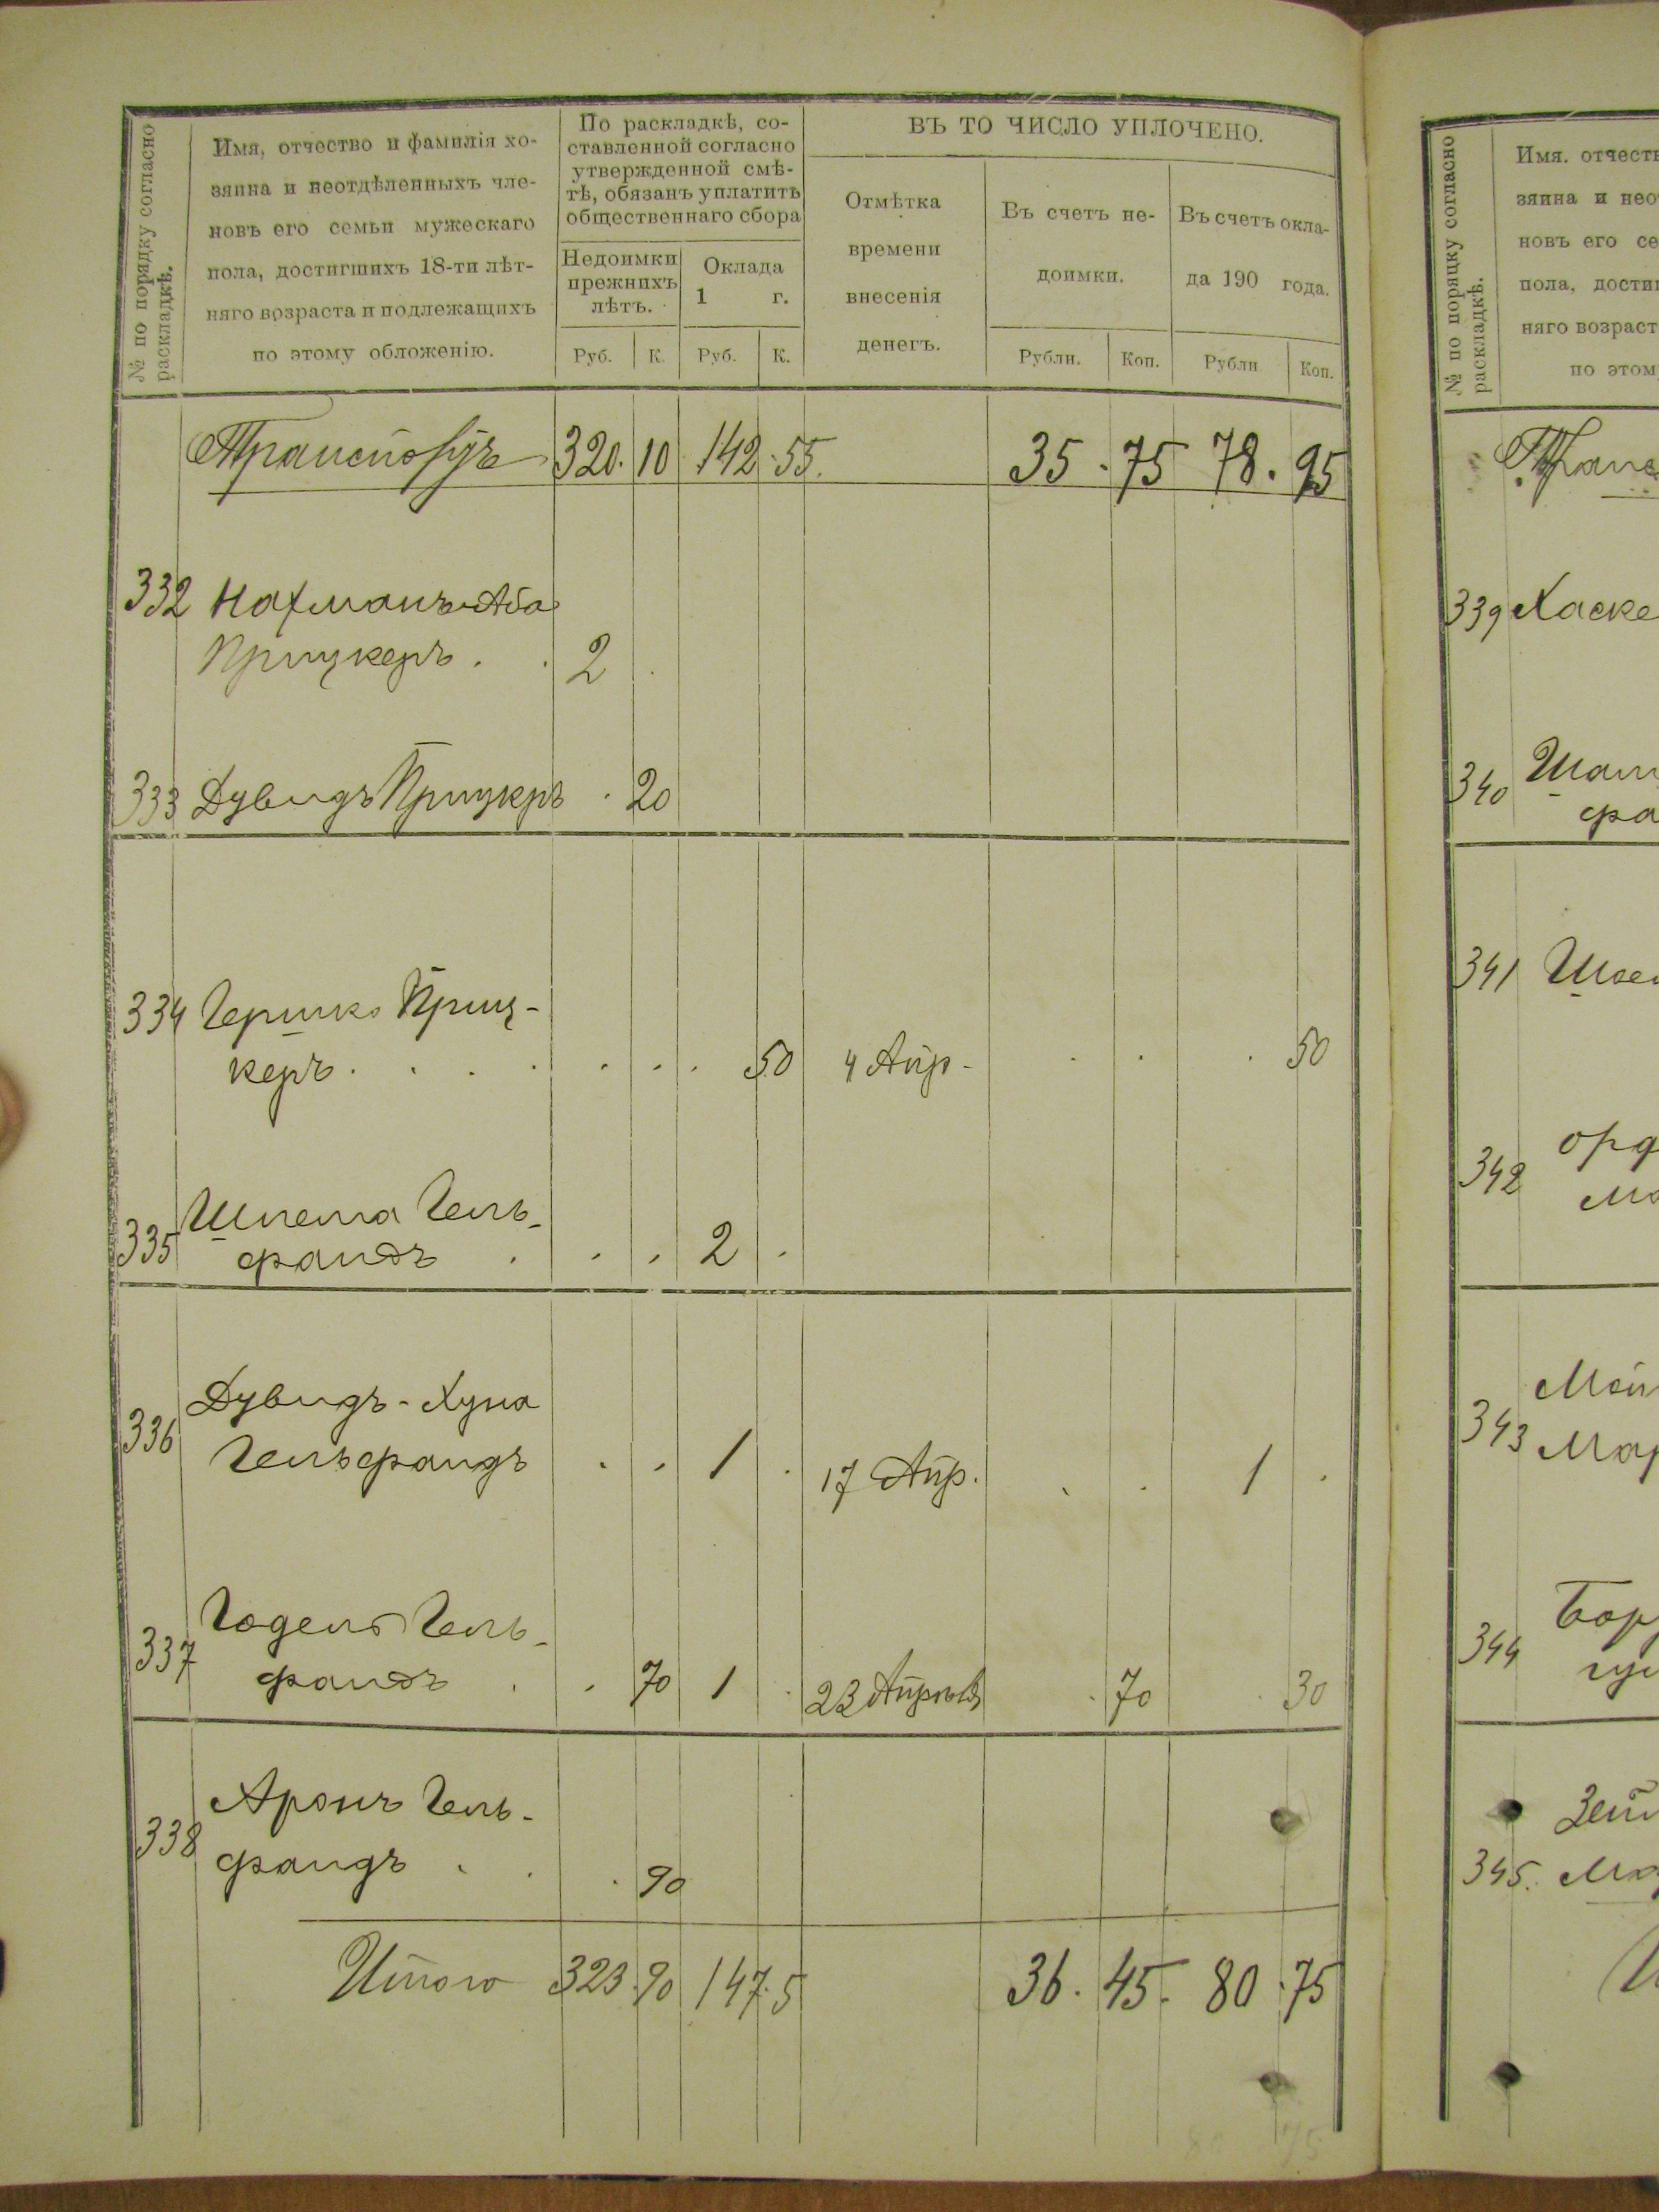 № по порядку согласно
раскладкѣ.
Имя, отчество и фамилія хо-
зяина и неотдѣленныхъ чле-
новъ его семьи мужескаго
пола, достигшихъ 18-ти лѣт-
няго возраста и подлежащихъ
по этому обложенію.
По раскладкѣ, со-
ставленной согласно
утвержденной смѣ-
тѣ, обязанъ уплатить
общественнаго сбора
Недоимки
прежнихъ
лѣтъ.
Оклада
1 г.
Руб. К. Руб. К.
ВЪ ТО ЧИСЛО УПЛОЧЕНО.
Отмѣтка
времени
внесенія
денегъ.
Въ счетъ не-
доимки.
Въ счетъ окла-
да 190 года.
Рубли. Коп. Рубли Коп.
Транспортъ 320. 10 142. 55. 35. 75 78. 95
332 Нахманъ-Аба
Прицкеръ . . 2 .
333 Дувидъ Прицкръ . 20
334 Гершко Приц-
керъ . . . . . . . 50 4 Апр- . . . 50
Шлема Гель-
335 фандъ . . . 2 .
Дувидъ-Хуна
336 Гельфандъ . . 1 . 17 Апр. . . 1 .
Годель Гель-
337 фандъ . . 70 1 . 23 Апрѣля . 70 . 30
Аронъ Гель-
338 фандъ . . . 90
Итого 323. 90 147. 5 36. 45. 80. 75
№ по порядку согласно
раскладкѣ.
Имя. отчеств
зяина и нео
новъ его се
пола, дости
няго возраст
по этом
339 Хаске
340
фа
341
342
343
Мар
344
345.